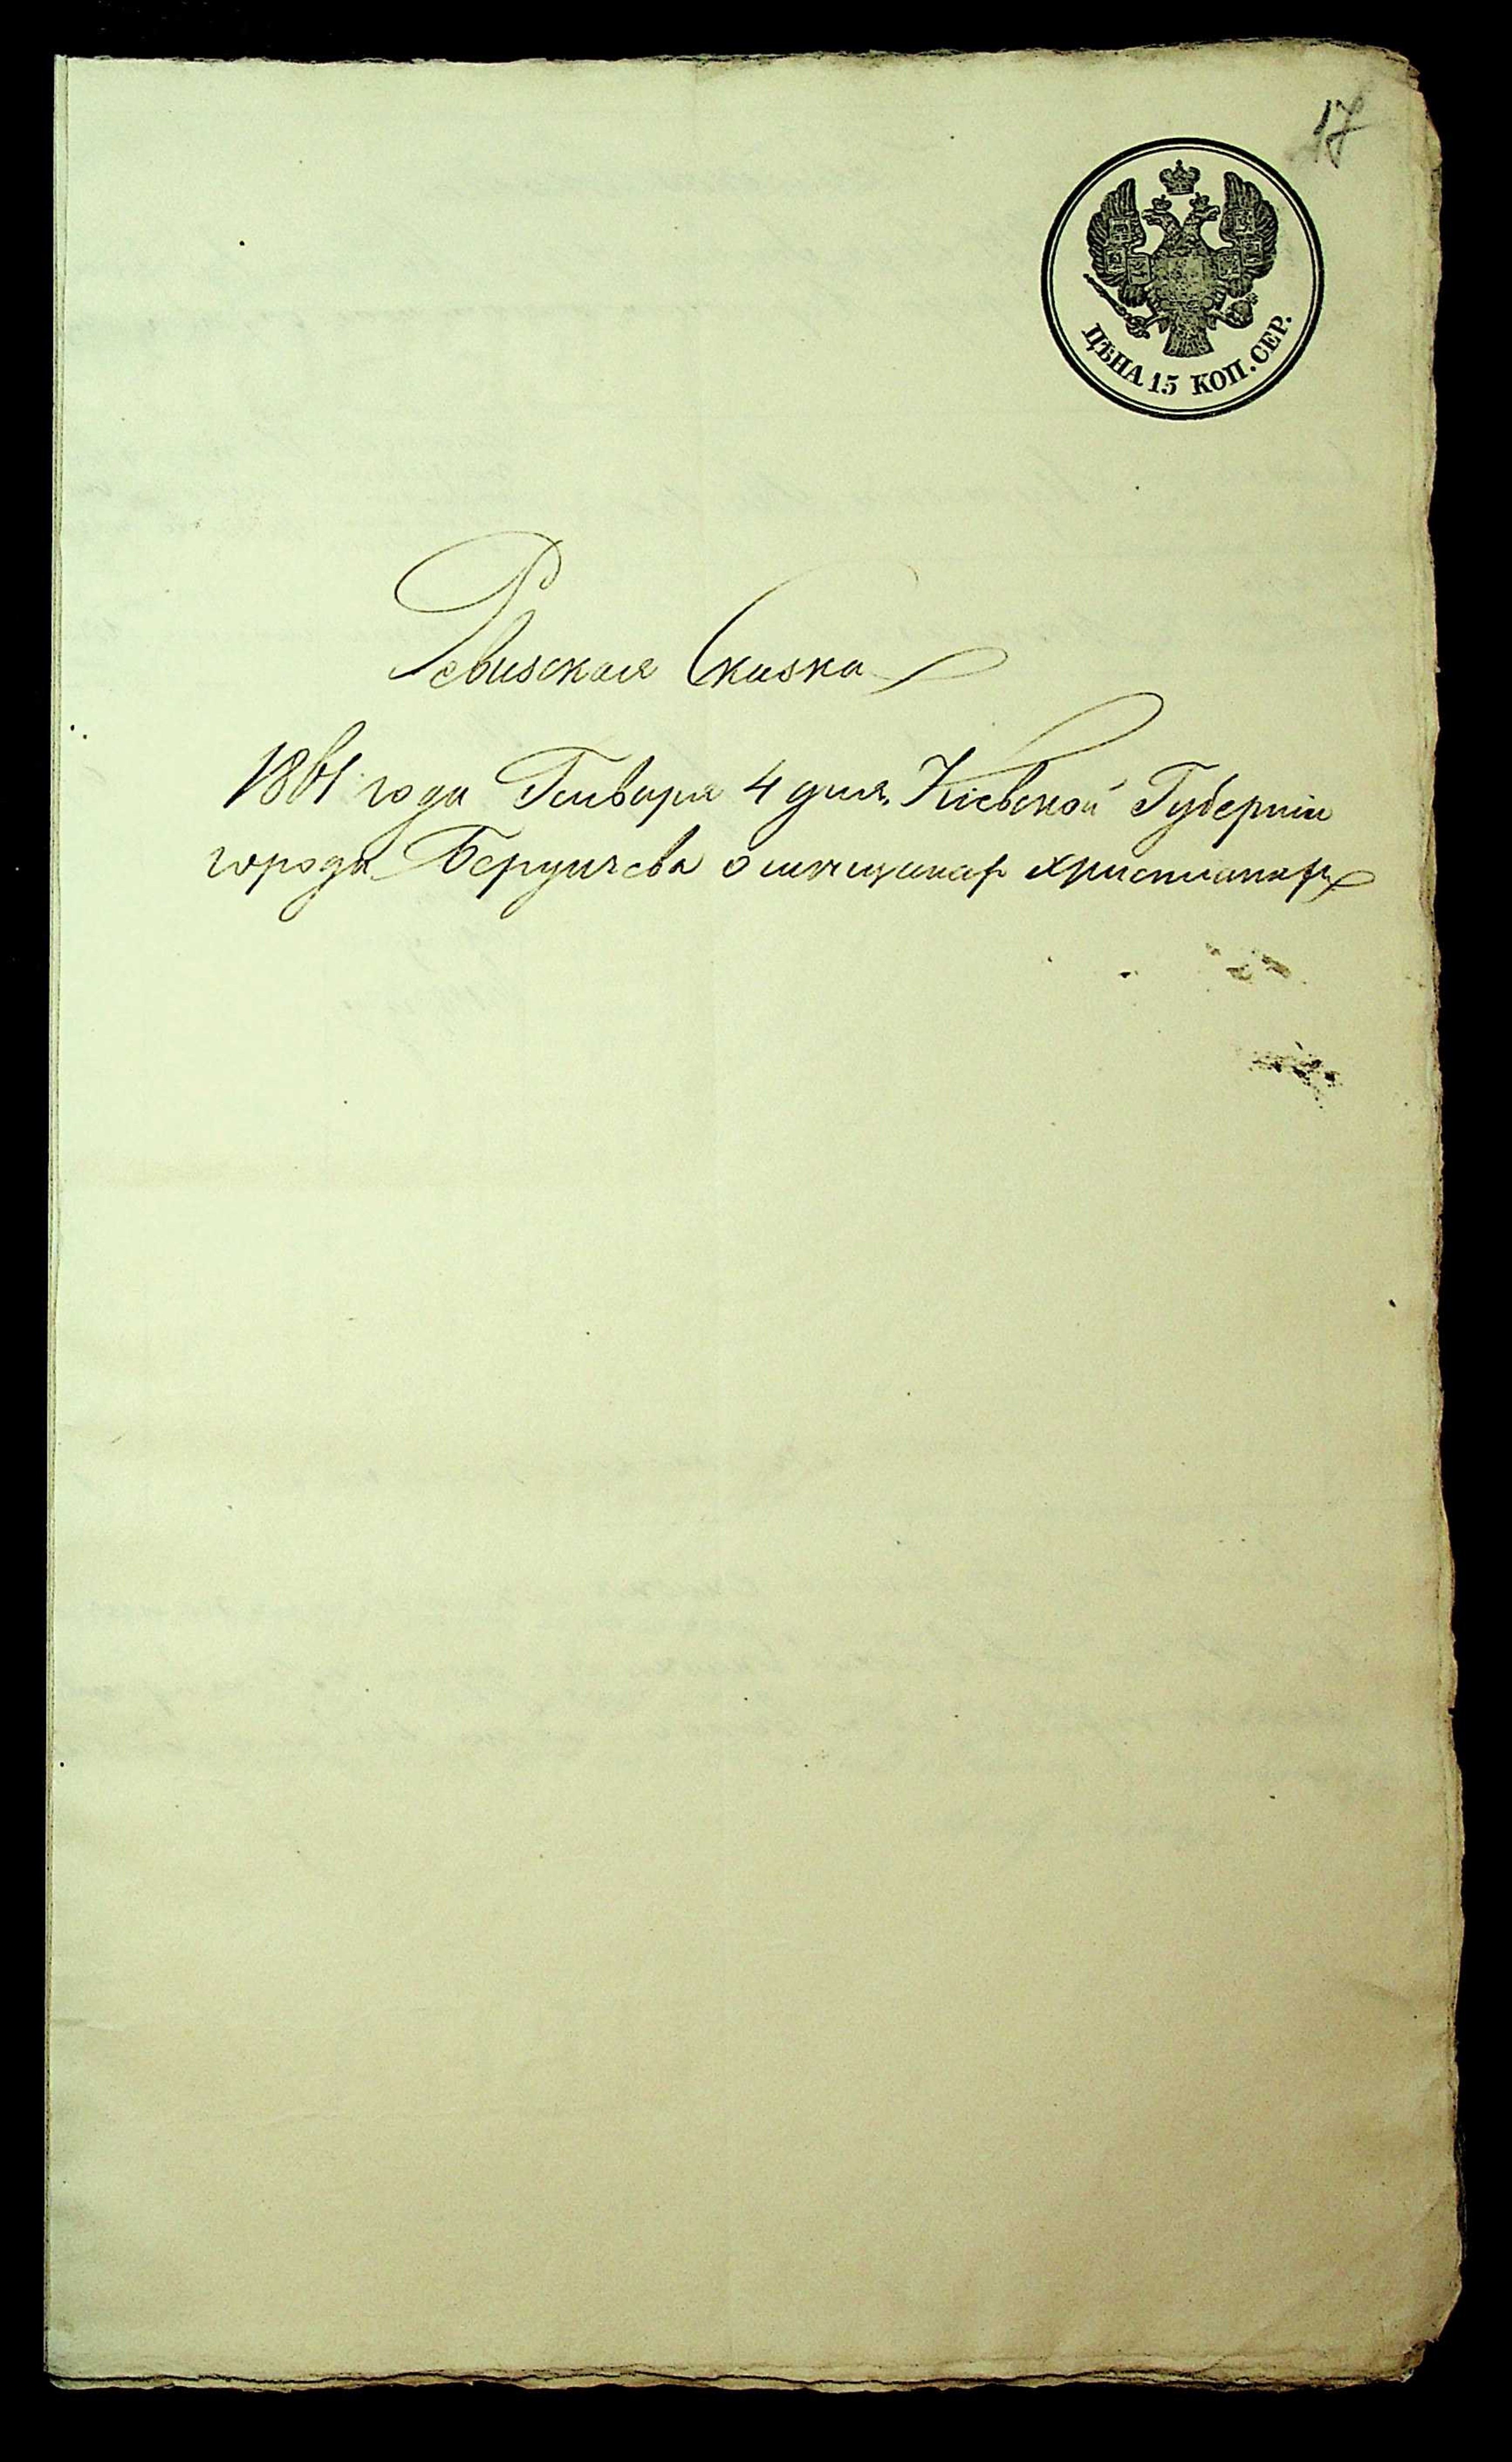 17
ЦѢНА 15 КОП. СЕР.
Ревизская Сказка
1861 года Генваря 4 дня, Кіевской Губерніи
города Бердичева о мѣщанах христіанах